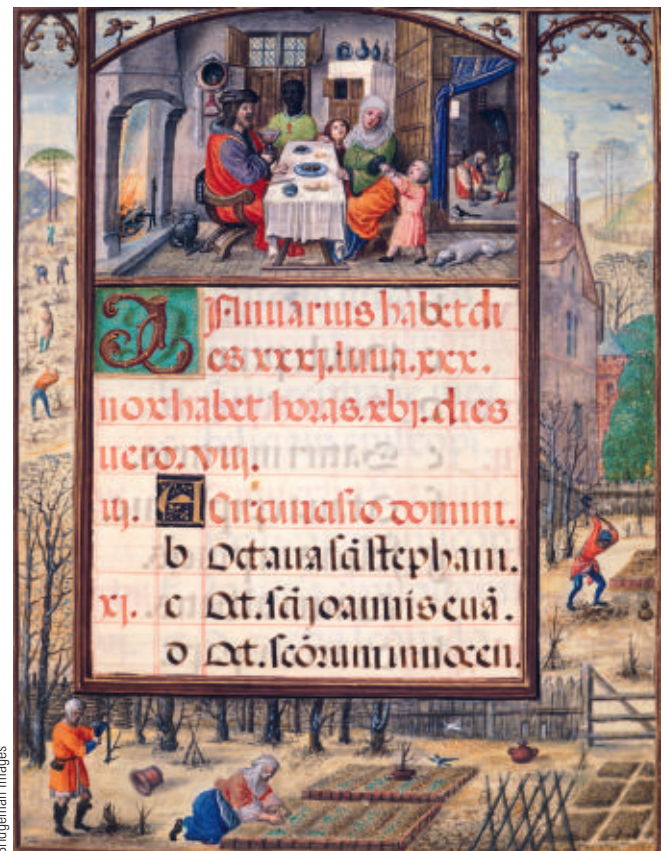 Januarius habet di
es xxxj. luna. xxx.
nox habet horas. xvj. dies
uero. viij.
iij. A Circuncisio domini.
b Octaua scī stephani.
xj. c Oct. scī joannis euā.
d Oct. scōrum innocen.
Bridgeman Images